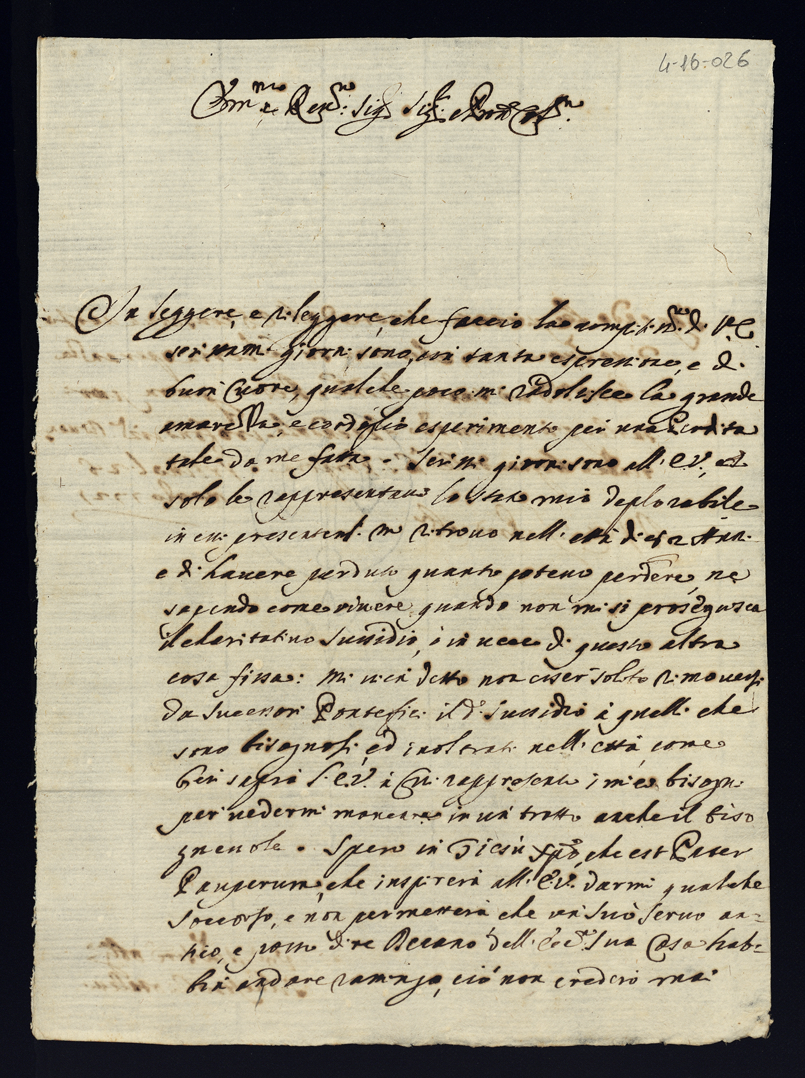 4-16-026
Em.mo e Rev.mo Sig.r Sig.r e Pron Col.mo
In leggere, e rileggere, che faccio la compit.ma di V.E.
scrittami giorni sono, con tanta espressione, e di
buon Cuore, qualche poco mi radolisce la grande
amarezza, e cordoglio esperimento per una Perdita
tale da me fatta. Scrissi giorni sono all'E.V., et
solo le rappresentavo lo stato mio deplorabile
in cui presentem.te mi ritrovo nell'età di 52 Anni
e di havere perduto quanto potevo perdere, ne
sapendo come vivere quando non mi si proseguisca
il charitativo sussidio, ò in vece di questo altra
cosa fissa: mi vien detto non esser solito rimoversi
da successori Pontefici il d.o sussidio à quelli che
sono bisognosi, ed inoltrati nell'età, come
ben saprà l'E.V. à Cui rappresento i miei bisogni
per vedermi mancare in un tratto anche il biso
gnevole. Spero in Giesù Xpõ, che est Pater
Pauperum, che inspirerà all'E.V. darmi qualche
soccorso, e non permetterà che un suo servo an-
tico, e posso dire Decano dell'Ecc.ma sua Casa hab-
bia andare ramingo, ciò non crederò mai